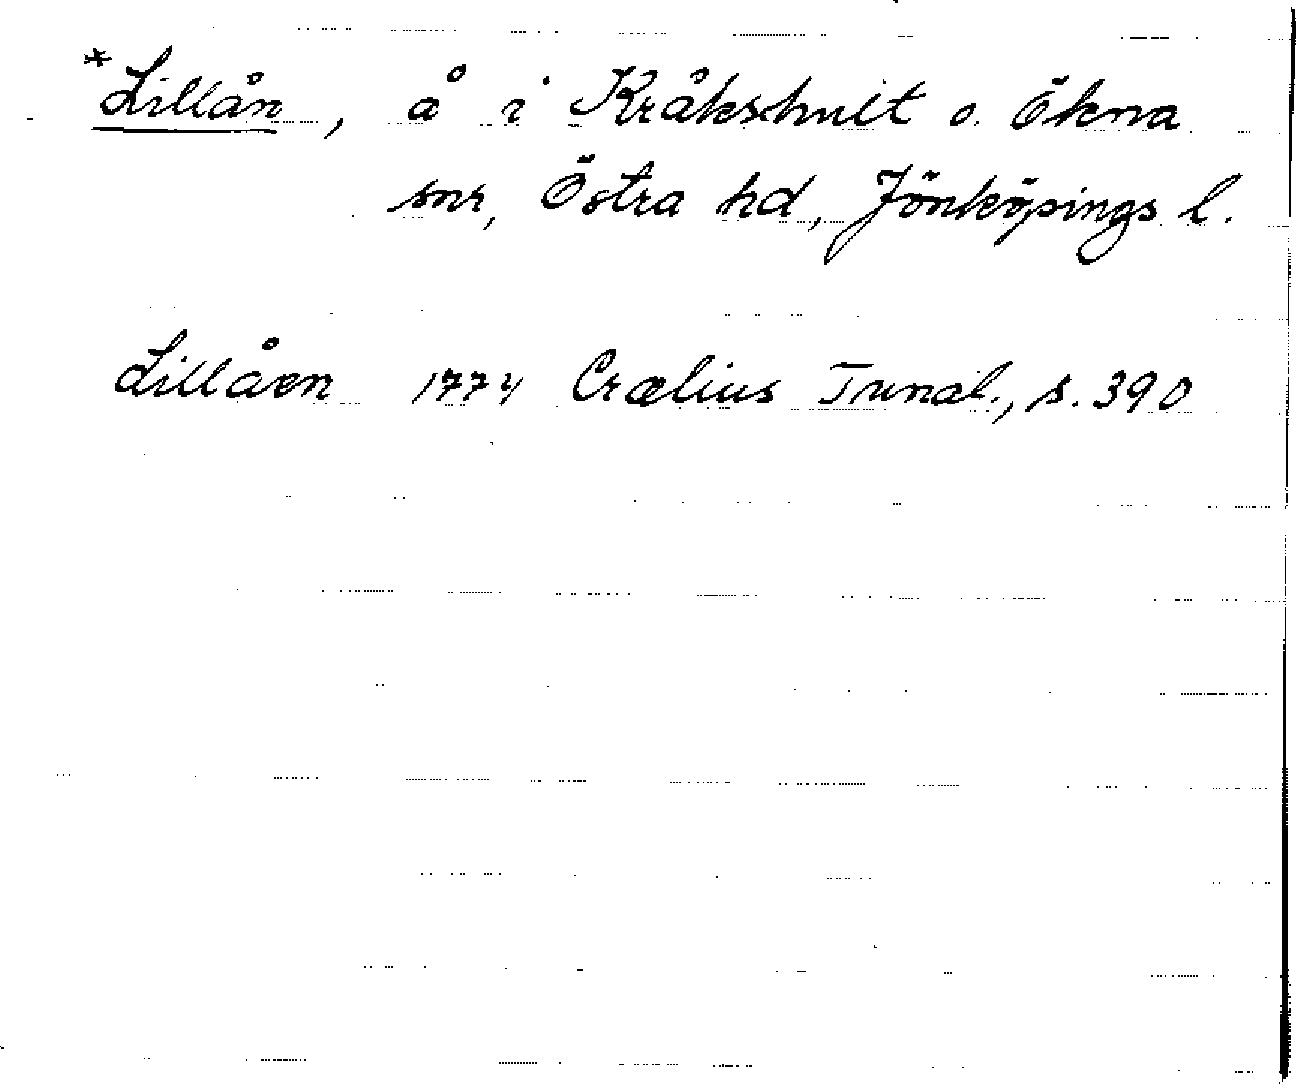 *Lillån, å i Kråkshult o. Ökna
snr, Östra hd, Jönköpings l.
Lillåen 1774 Crælius Tunal., s. 390